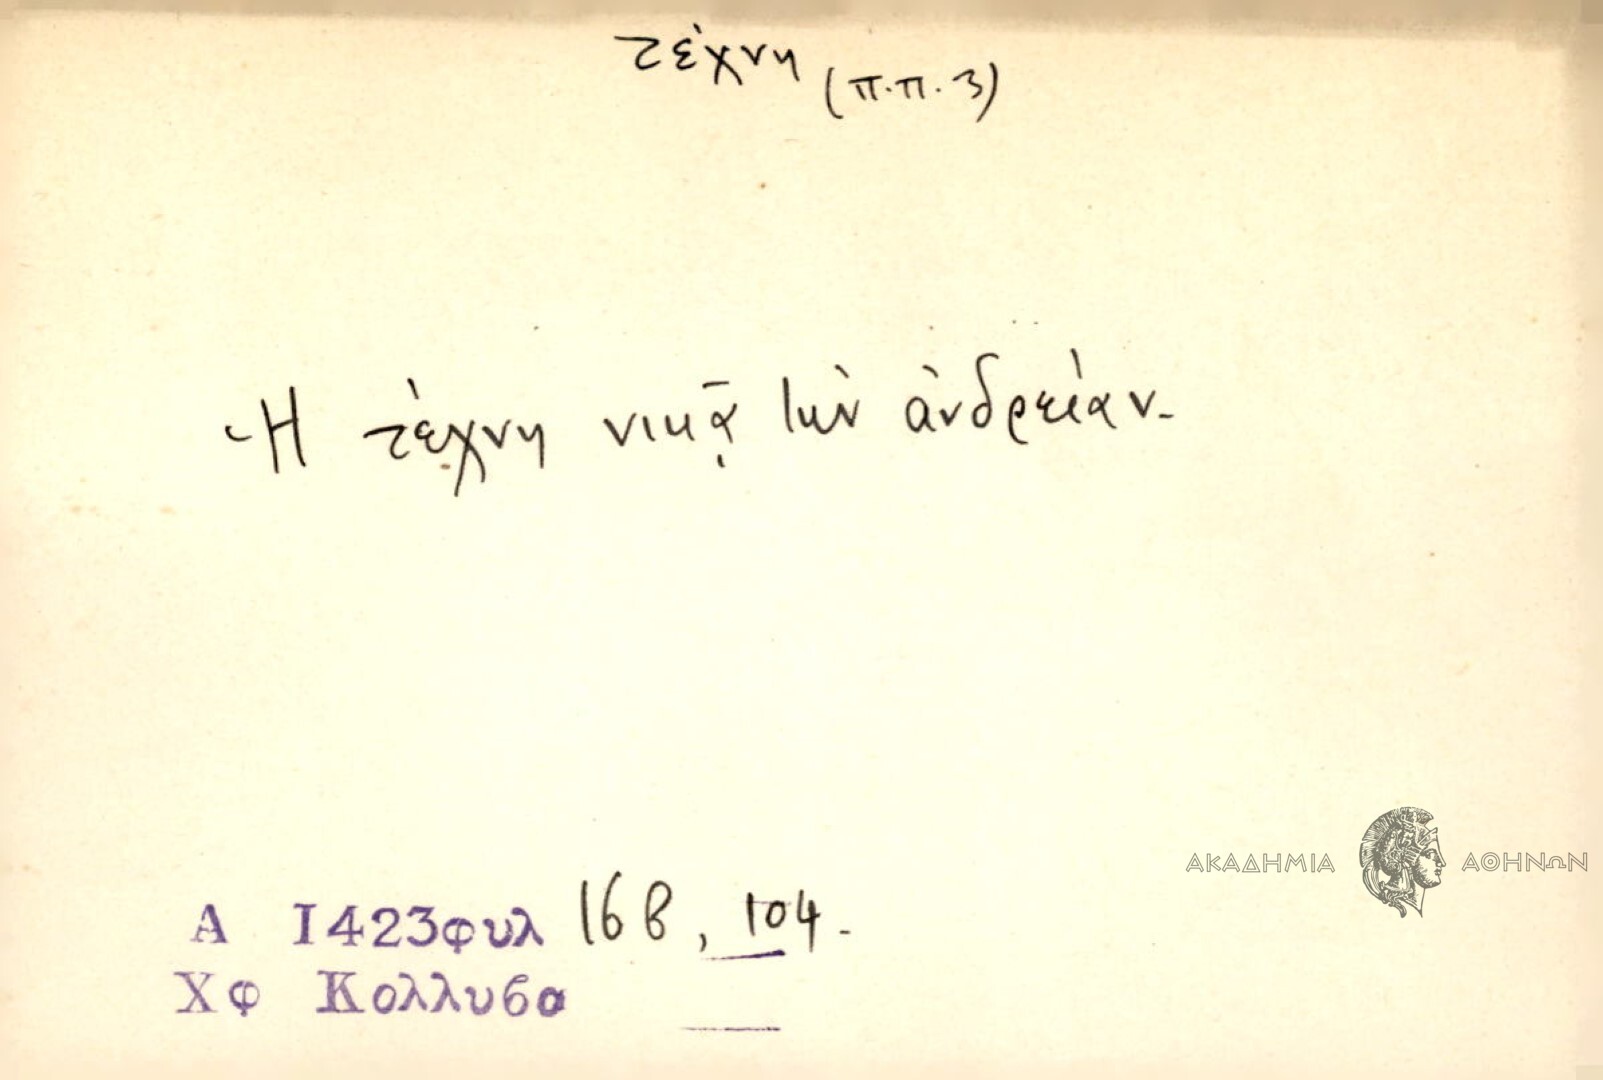 τέχνη (π.π. 3)
Ἡ τέχνη νικᾷ τὴν ἀνδρείαν.
ΑΚΑΔΗΜΙΑ ΑΘΗΝΩΝ
Α 1423φυλ 16β, 104.
Χφ Κολλυβα